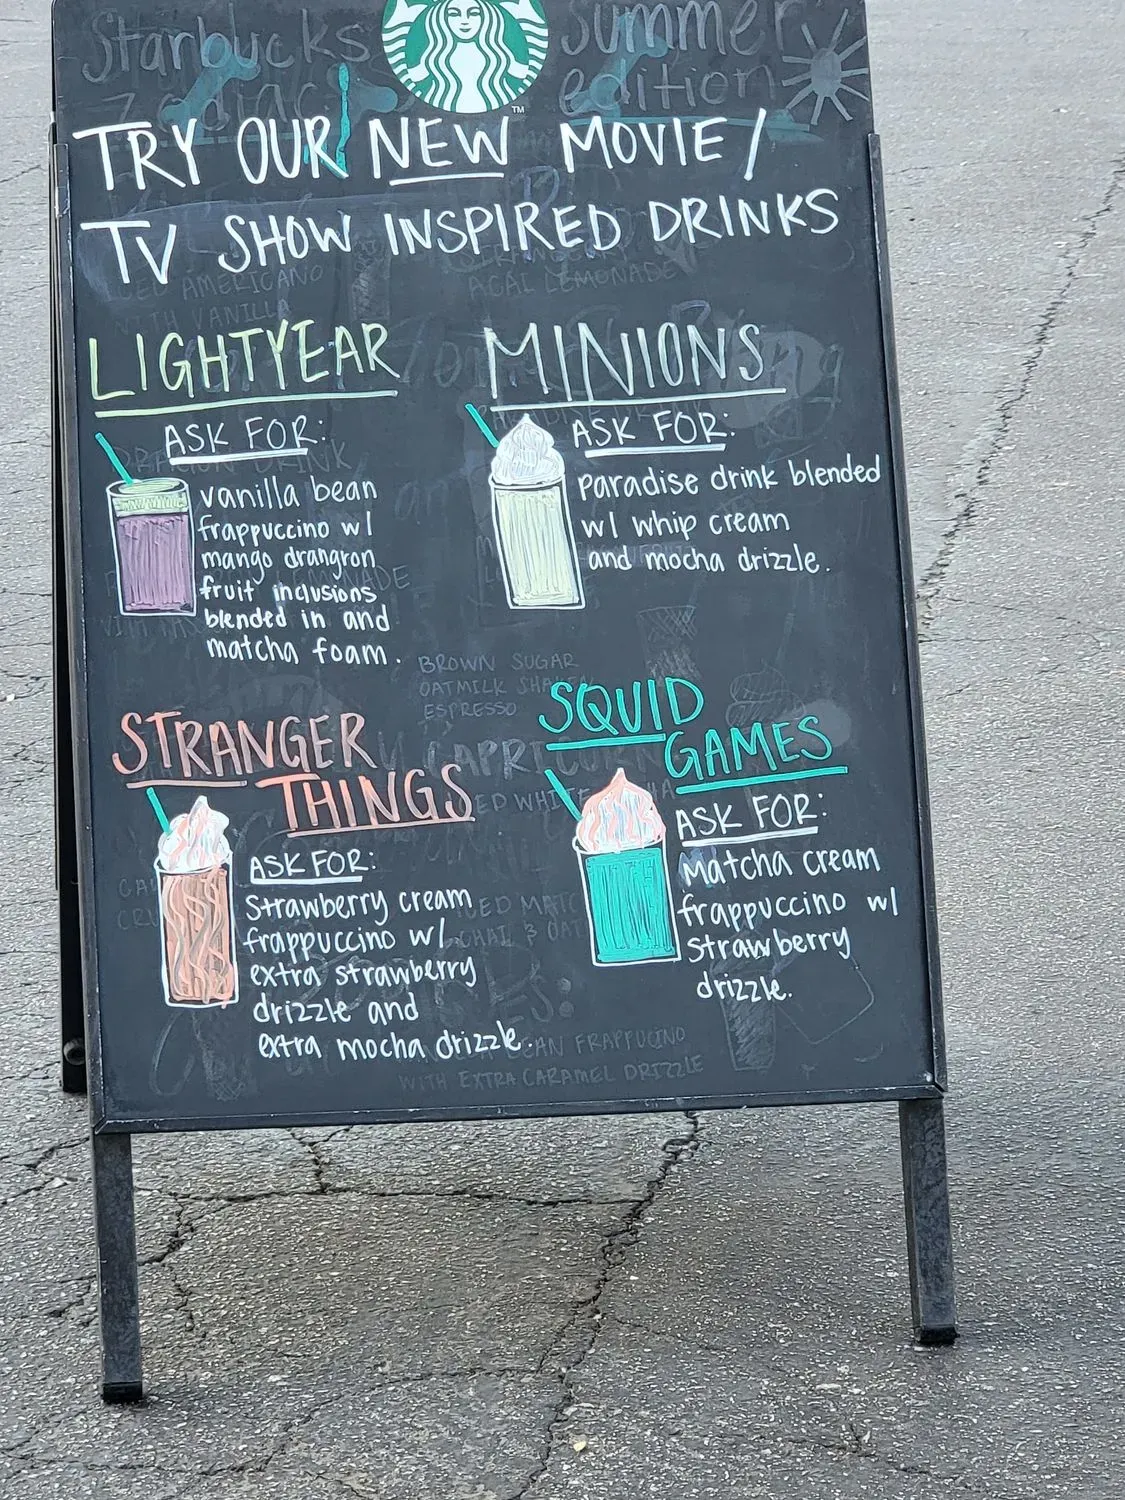 Starbucks summer
zodiac edition
TM
TRY OUR NEW MOVIE/
TV SHOW INSPIRED DRINKS
LIGHTYEAR
ASK FOR:
vanilla bean
frappuccino w/
mango drangron
fruit inclusions
blended in and
matcha foam.
MINIONS
ASK FOR:
paradise drink blended
w/ whip cream
and mocha drizzle.
BROWN SUGAR
OATMILK SHAKEN
ESPRESSO
STRANGER
THINGS
ASK FOR:
strawberry cream
frappuccino w/
extra strawberry
drizzle and
extra mocha drizzle.
SQUID
GAMES
ASK FOR:
Matcha cream
frappuccino w/
strawberry
drizzle.
ICED AMERICANO
WITH VANILLA
ACAI LEMONADE
DRAGON DRINK
CAPRICORN
FRAPPUCINO
WITH EXTRA CARAMEL DRIZZLE